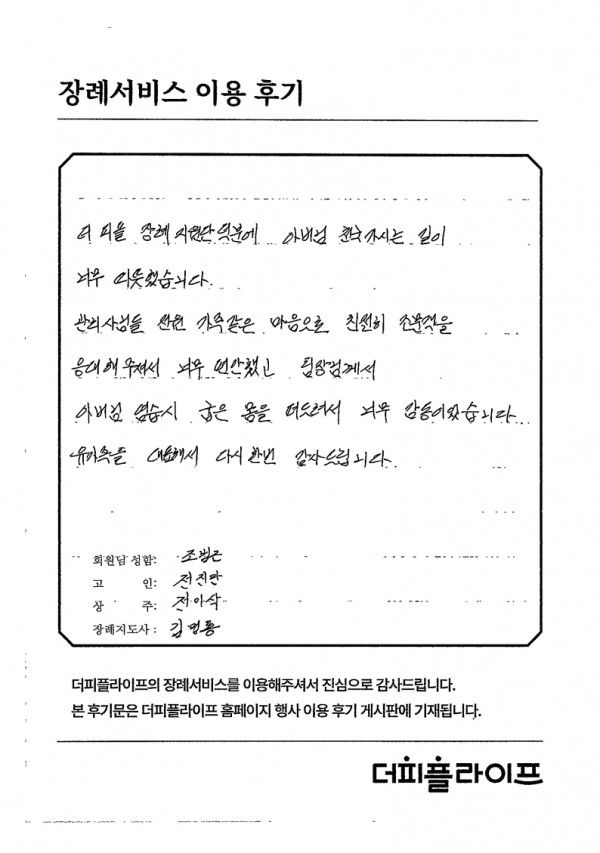 장례서비스 이용 후기
더 피플 장례지원단 덕분에 아버님 가시는 길이
너무 따뜻했습니다.
관리사님들 전원 가족같은 마음으로 친절히 조문객을
응대해 주셔서 너무 편안했고 팀장님께서
아버님 염습시 굽은 몸을 펴드려서 너무 감동이었습니다.
유가족을 대표해서 다시한번 감사드립니다.
회원님 성함: 조범근
고 인: 전진만
상 주: 전이삭
장례지도사 : 김명룡
더피플라이프의 장례서비스를 이용해주셔서 진심으로 감사드립니다.
본 후기문은 더피플라이프 홈페이지 행사 이용 후기 게시판에 기재됩니다.
더피플라이프